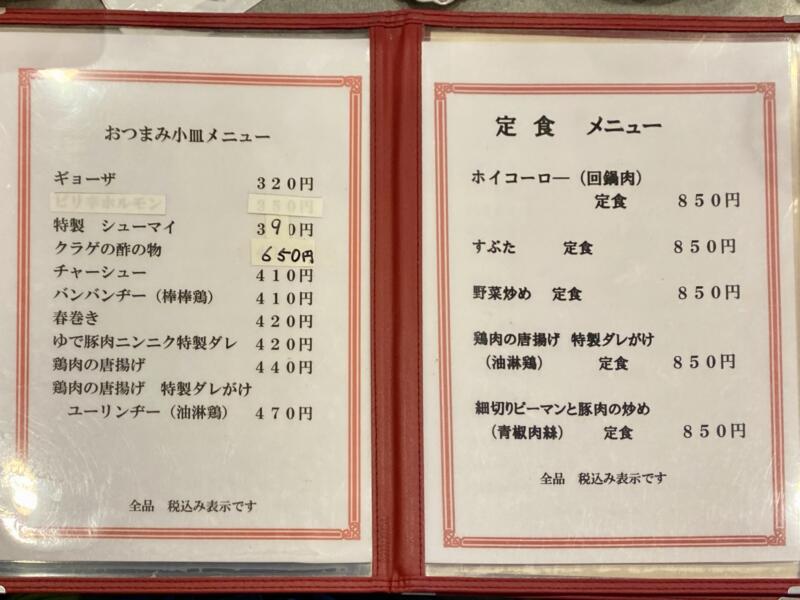 おつまみ小皿メニュー
ギョーザ ３２０円
ピリ辛ホルモン ３５０円
特製 シューマイ ３９０円
クラゲの酢の物 650円
チャーシュー ４１０円
バンバンヂー（棒棒鶏） ４１０円
春巻き ４２０円
ゆで豚肉ニンニク特製ダレ ４２０円
鶏肉の唐揚げ ４４０円
鶏肉の唐揚げ 特製ダレがけ
ユーリンヂー（油淋鶏） ４７０円
全品 税込み表示です
定食 メニュー
ホイコーロー（回鍋肉）
定食 ８５０円
すぶた 定食 ８５０円
野菜炒め 定食 ８５０円
鶏肉の唐揚げ 特製ダレがけ
（油淋鶏） 定食 ８５０円
細切りピーマンと豚肉の炒め
（青椒肉絲） 定食 ８５０円
全品 税込み表示です